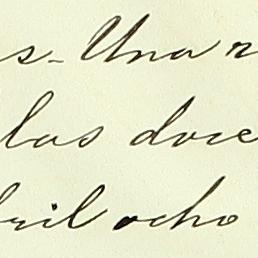 s- Una r
las doce
bril ocho